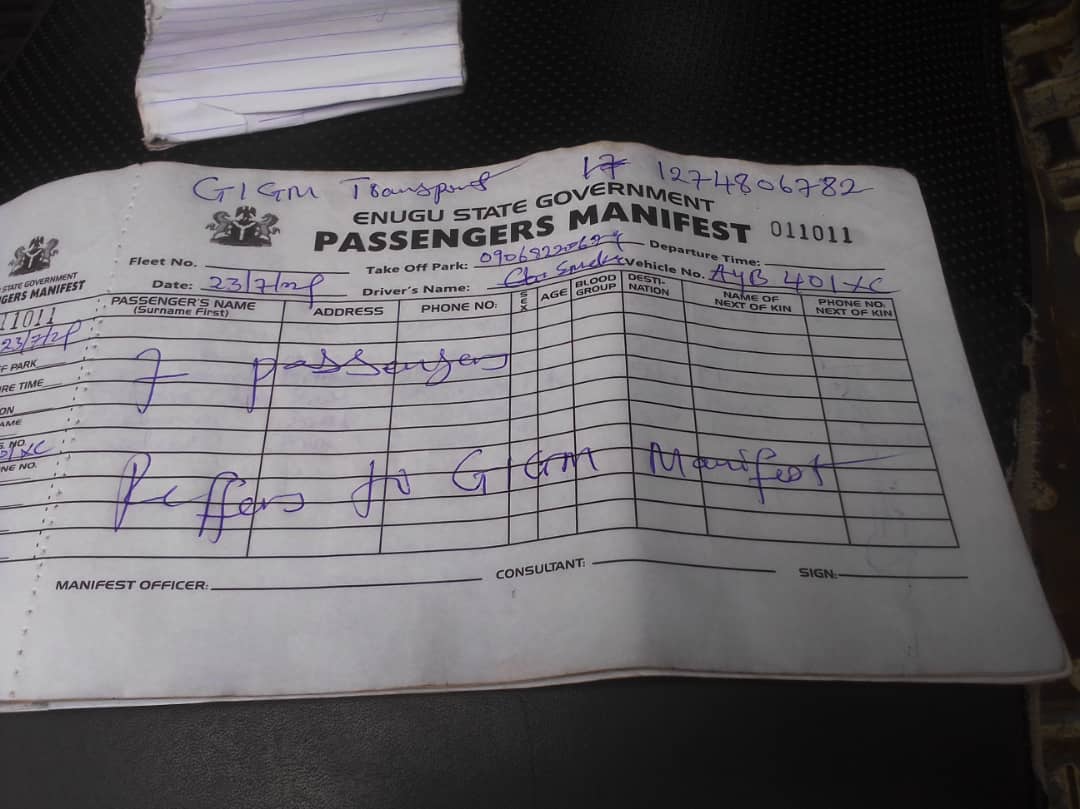 GIGM Transport 17 1274806782
ENUGU STATE GOVERNMENT
PASSENGERS MANIFEST 011011
Fleet No. Take Off Park: Departure Time:
Date: 23/7/ Driver's Name: Vehicle No. AYB 401XC
PASSENGER'S NAME (Surname First) ADDRESS PHONE NO: SEX AGE BLOOD GROUP DESTI-NATION NAME OF NEXT OF KIN PHONE NO: NEXT OF KIN
7 passengers
Reffers to GIGM Manifest
MANIFEST OFFICER: CONSULTANT: SIGN:
STATE GOVERNMENT
GERS MANIFEST
11011
23/7/
F PARK
RE TIME
ON
AME
S. NO.
1XC
NE NO.